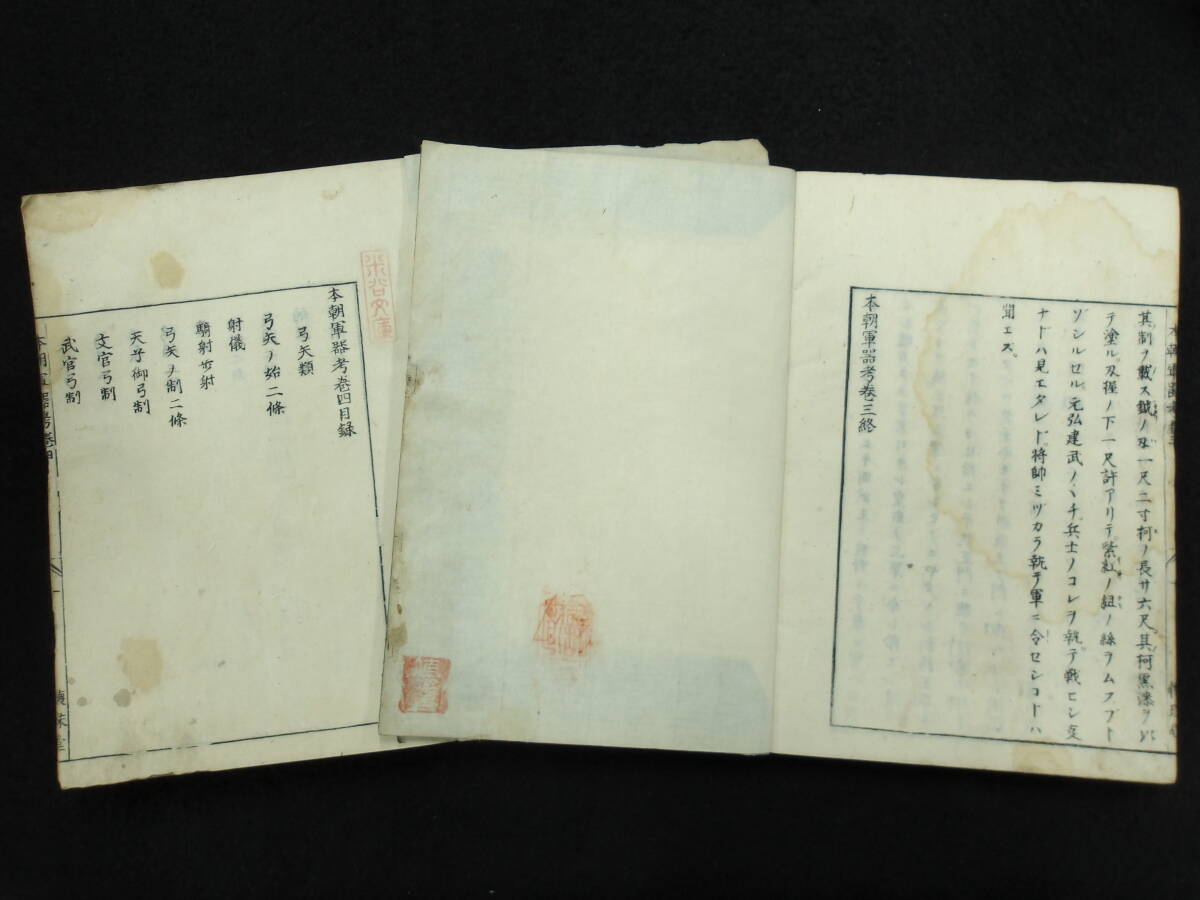 其制ヲ載ス鉞ノ刄一尺二寸柯ノ長サ六尺其柯黒漆ヲ以
テ塗ル刄槿ノ下一尺許アリテ紫紅ノ組ノ絲ヲムスブト
ゾシルセル元弘建武ノヽチ兵士ノコレヲ執テ戦ヒシ交
ナドハ見エタレド將帥ミヅカラ執テ軍ニ令センコトハ
聞エズ
本朝軍器考巻三終
本朝軍器考巻四目録
弓矢類
弓矢ノ始二條
射儀
騎射歩射
弓矢ノ制二條
天子御弓制
文官弓制
武官弓制
米谷文庫
本朝軍器考巻四